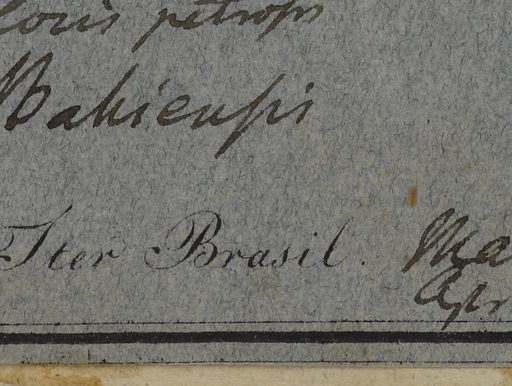 locis petrosis
Bahiensis
Iter Brasil.
Ma
Apr